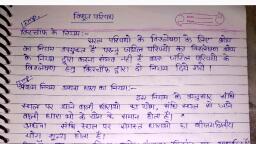 विद्युत परिपथ
किरचॉफ के नियम:-
सरल परिपथों के विश्लेषण के लिए ओम
का नियम उपयुक्त है परन्तु जटिल परिपथों का विश्लेषण ओम
के नियम द्वारा करना संभव नहीं है अतः जटिल परिपथों के
विश्लेषण हेतु किरचॉफ द्वारा दो नियम दिये गये।
प्रथम नियम अथवा धारा का नियम:-
इस नियम के अनुसार संधि
स्थल पर आने वाली धाराओं का योग, संधि स्थल से जाने
वाली धाराओं के योग के समान होता है।
अथवा संधि स्थल पर समस्त धाराओं का बीजगणितीय
योग शून्य होता है।